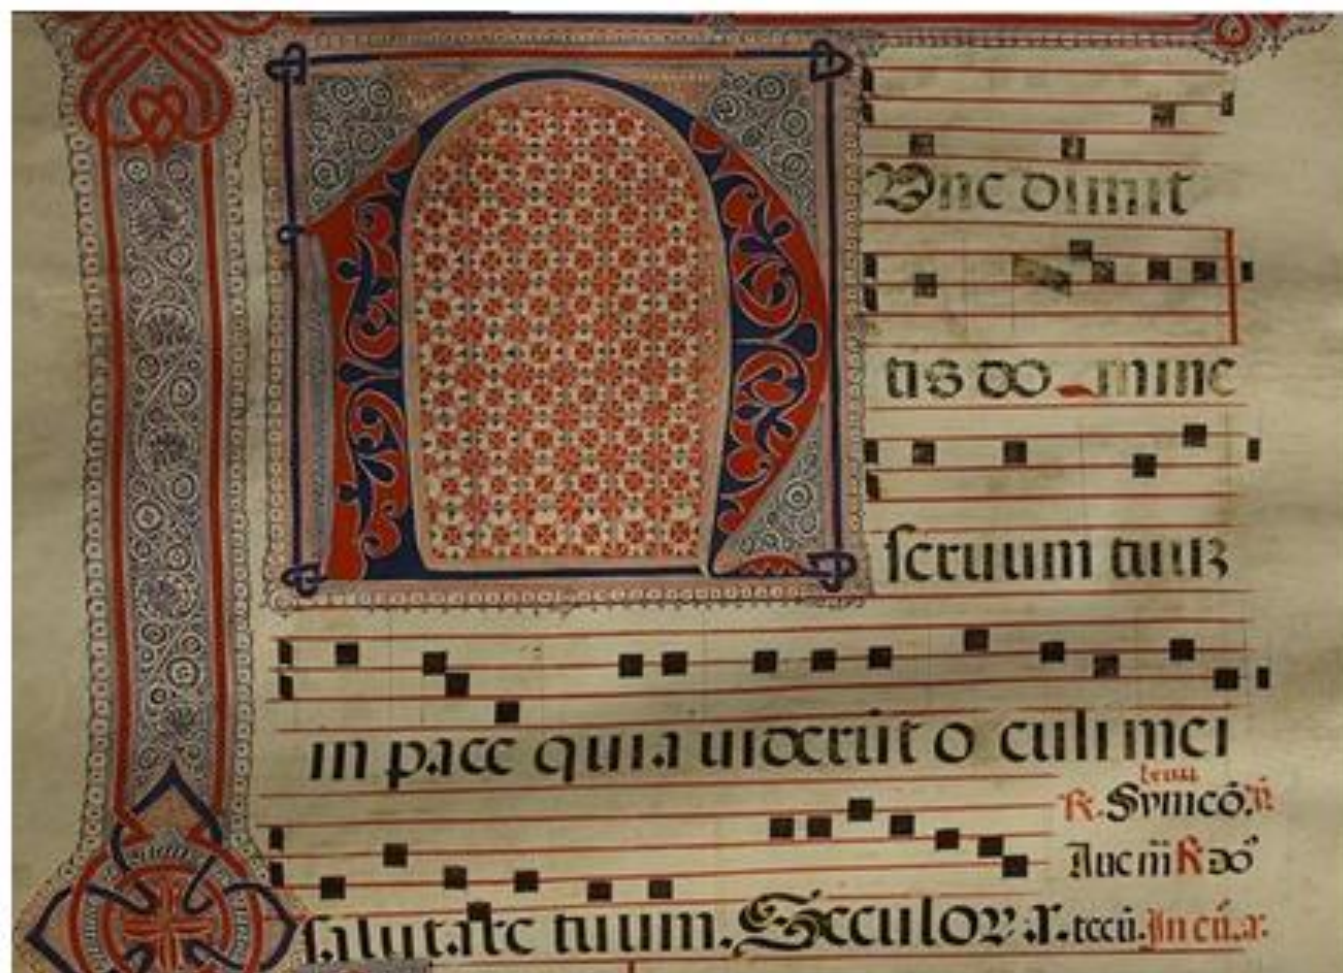 Nunc dimit
tis do mine
seruum tuuz
in pace quia uiderūt oculi mei
R. Symeó.
Aue m̄ R do
salutare tuum. Seculor. a.